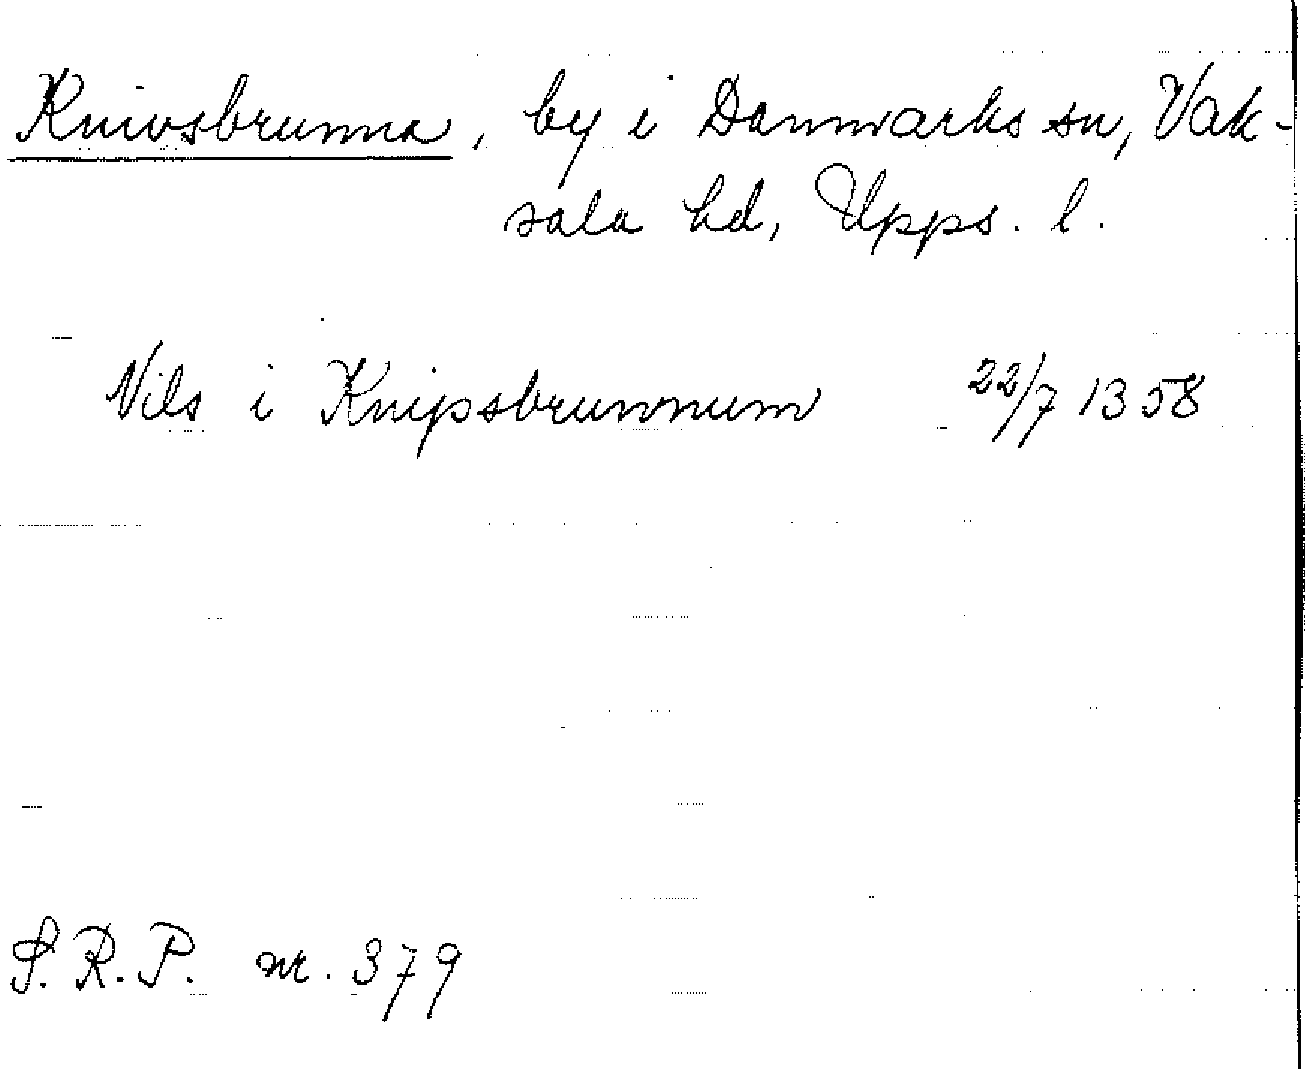 Knivsbrunna, by i Danmarks sn, Vak-
sala hd, Upps. l.
Nils i Knipsbrunnum 22/7 1358
S.R.P. nr. 379